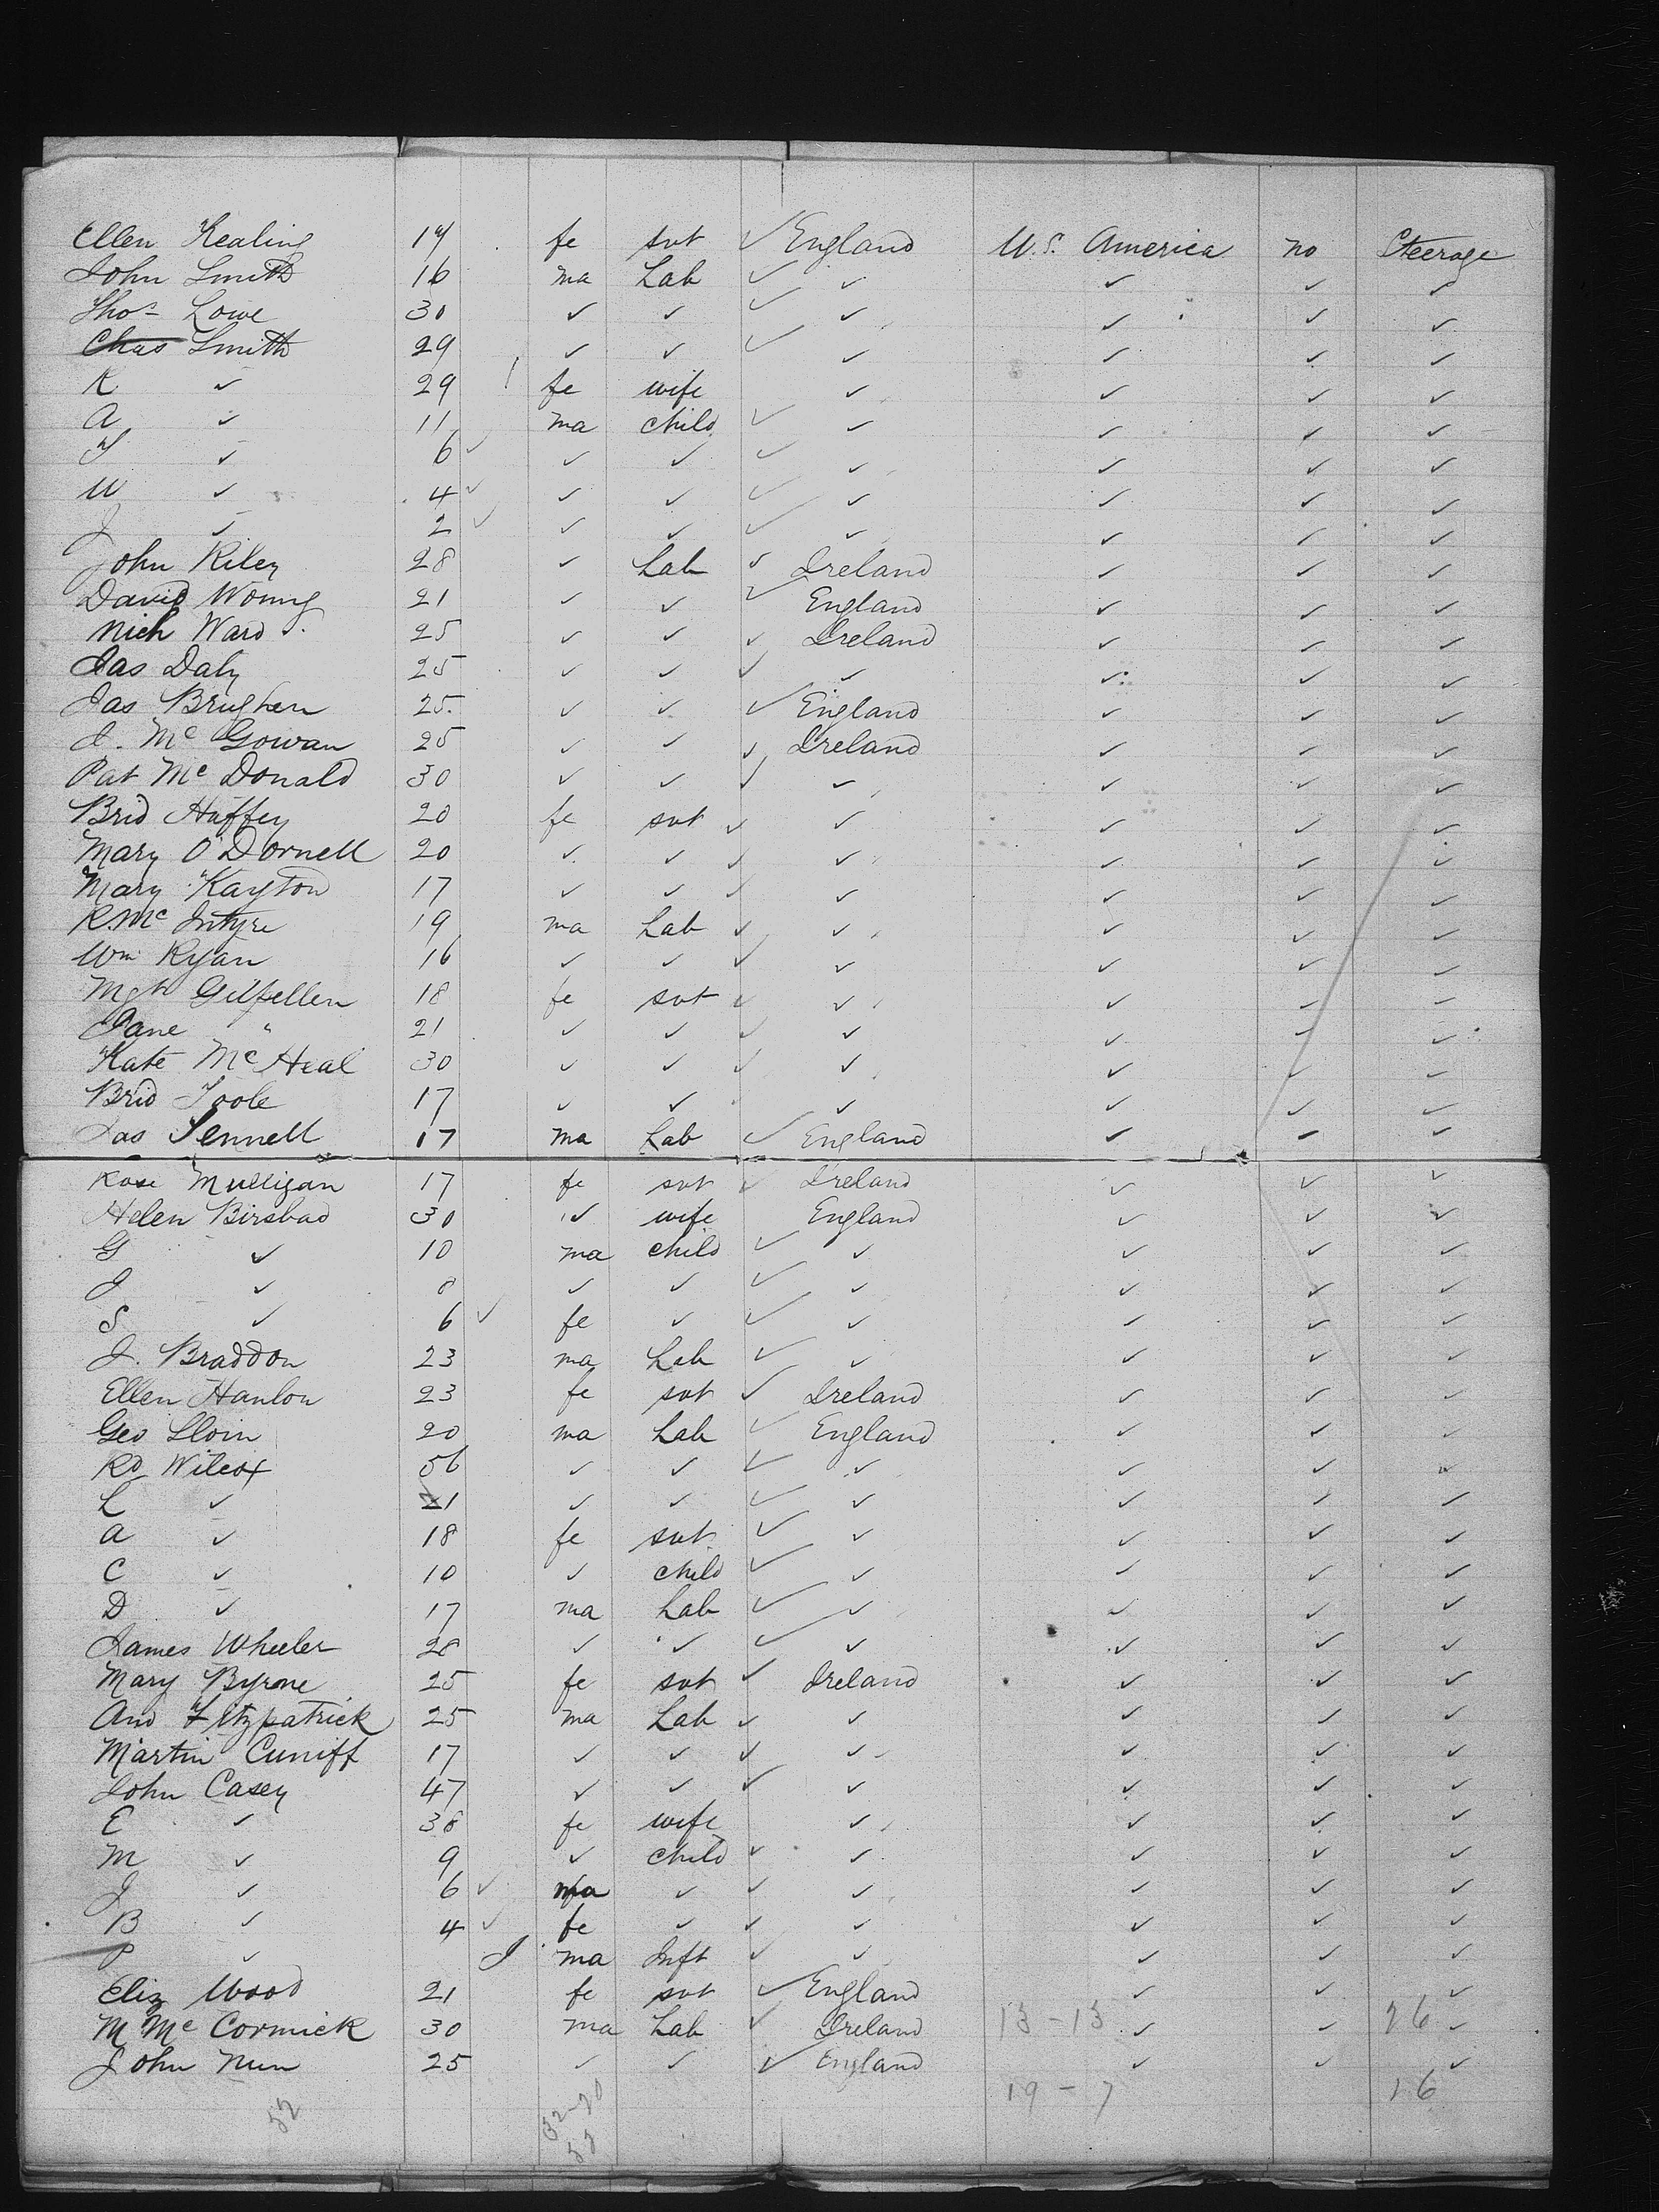 Ellen Kealing 17 fe svt ✓ England U.S. America no Steerage
John Smith 16 ma Lab ✓ ✓ ✓ ✓ ✓
Thos Lowe 30 ✓ ✓ ✓ ✓ ✓ ✓ ✓
Chas Smith 29 ✓ ✓ ✓ ✓ ✓ ✓ ✓
K ✓ 29 fe wife ✓ ✓ ✓ ✓
A ✓ 11 ma child ✓ ✓ ✓ ✓ ✓
T ✓ 6 ✓ ✓ ✓ ✓ ✓ ✓ ✓ ✓
W ✓ 4 ✓ ✓ ✓ ✓ ✓ ✓ ✓ ✓
J ✓ 2 ✓ ✓ ✓ ✓ ✓ ✓ ✓ ✓
John Riley 28 ✓ Lab ✓ Ireland ✓ ✓ ✓
David 21 ✓ ✓ ✓ England ✓ ✓ ✓
Nich Ward 25 ✓ ✓ ✓ Ireland ✓ ✓ ✓
Jas Daly 25 ✓ ✓ ✓ ✓ ✓ ✓ ✓
Jas Brughen 25 ✓ ✓ ✓ England ✓ ✓ ✓
J. Mc Gowan 25 ✓ ✓ ✓ Ireland ✓ ✓ ✓
Pat Mc Donald 30 ✓ ✓ ✓ ✓ ✓ ✓ ✓
Brid Haffey 20 fe svt ✓ ✓ ✓ ✓ ✓
Mary O'Dornell 20 ✓ ✓ ✓ ✓ ✓ ✓ ✓
Mary Kayton 17 ✓ ✓ ✓ ✓ ✓ ✓ ✓
R. Mc Intyre 19 ma Lab ✓ ✓ ✓ ✓ ✓
Wm Ryan 16 ✓ ✓ ✓ ✓ ✓ ✓ ✓
Mgt Gilfellen 18 fe svt ✓ ✓ ✓ ✓ ✓
Jane " 21 ✓ ✓ ✓ ✓ ✓ ✓ ✓
Kate Mc Heal 30 ✓ ✓ ✓ ✓ ✓ ✓ ✓
Brid Toole 17 ✓ ✓ ✓ ✓ ✓ ✓
Jas Sennell 17 ma Lab ✓ England ✓ ✓ ✓
Rose Mulligan 17 fe svt ✓ Ireland ✓ ✓ ✓
Helen Birsbad 30 ✓ wife England ✓ ✓ ✓
G ✓ 10 ma child ✓ ✓ ✓ ✓ ✓
J ✓ 8 ✓ ✓ ✓ ✓ ✓ ✓ ✓
S ✓ 6 ✓ fe ✓ ✓ ✓ ✓ ✓ ✓
J. Braddon 23 ma Lab ✓ ✓ ✓ ✓ ✓
Ellen Hanlon 23 fe svt ✓ Ireland ✓ ✓ ✓
Geo Sloin 20 ma Lab ✓ England ✓ ✓ ✓
Rd Wilcox 56 ✓ ✓ ✓ ✓ ✓ ✓ ✓
L ✓ 21 ✓ ✓ ✓ ✓ ✓ ✓ ✓
A ✓ 18 fe svt ✓ ✓ ✓ ✓ ✓
C ✓ 10 ✓ child ✓ ✓ ✓ ✓ ✓
D ✓ 17 ma Lab ✓ ✓ ✓ ✓ ✓
James Wheeler 28 ✓ ✓ ✓ ✓ ✓ ✓ ✓
Mary Byrone 25 fe svt ✓ Ireland ✓ ✓ ✓
And Fitzpatrick 25 ma Lab ✓ ✓ ✓ ✓ ✓
Martin Cuniff 17 ✓ ✓ ✓ ✓ ✓ ✓ ✓
John Casey 47 ✓ ✓ ✓ ✓ ✓ ✓ ✓
E ✓ 38 fe wife ✓ ✓ ✓ ✓
M ✓ 9 ✓ child ✓ ✓ ✓ ✓ ✓
J ✓ 6 ✓ ma ✓ ✓ ✓ ✓ ✓ ✓
B ✓ 4 ✓ fe ✓ ✓ ✓ ✓ ✓ ✓
P ✓ ma Inft ✓ ✓ ✓ ✓ ✓
Eliz Wood 21 fe svt ✓ England ✓ ✓ ✓
M Mc Cormick 30 ma Lab ✓ Ireland 13-13 ✓ ✓ 26 ✓
John Nun 25 ✓ ✓ ✓ England ✓ ✓ ✓
52 32-20 19-7 26
52